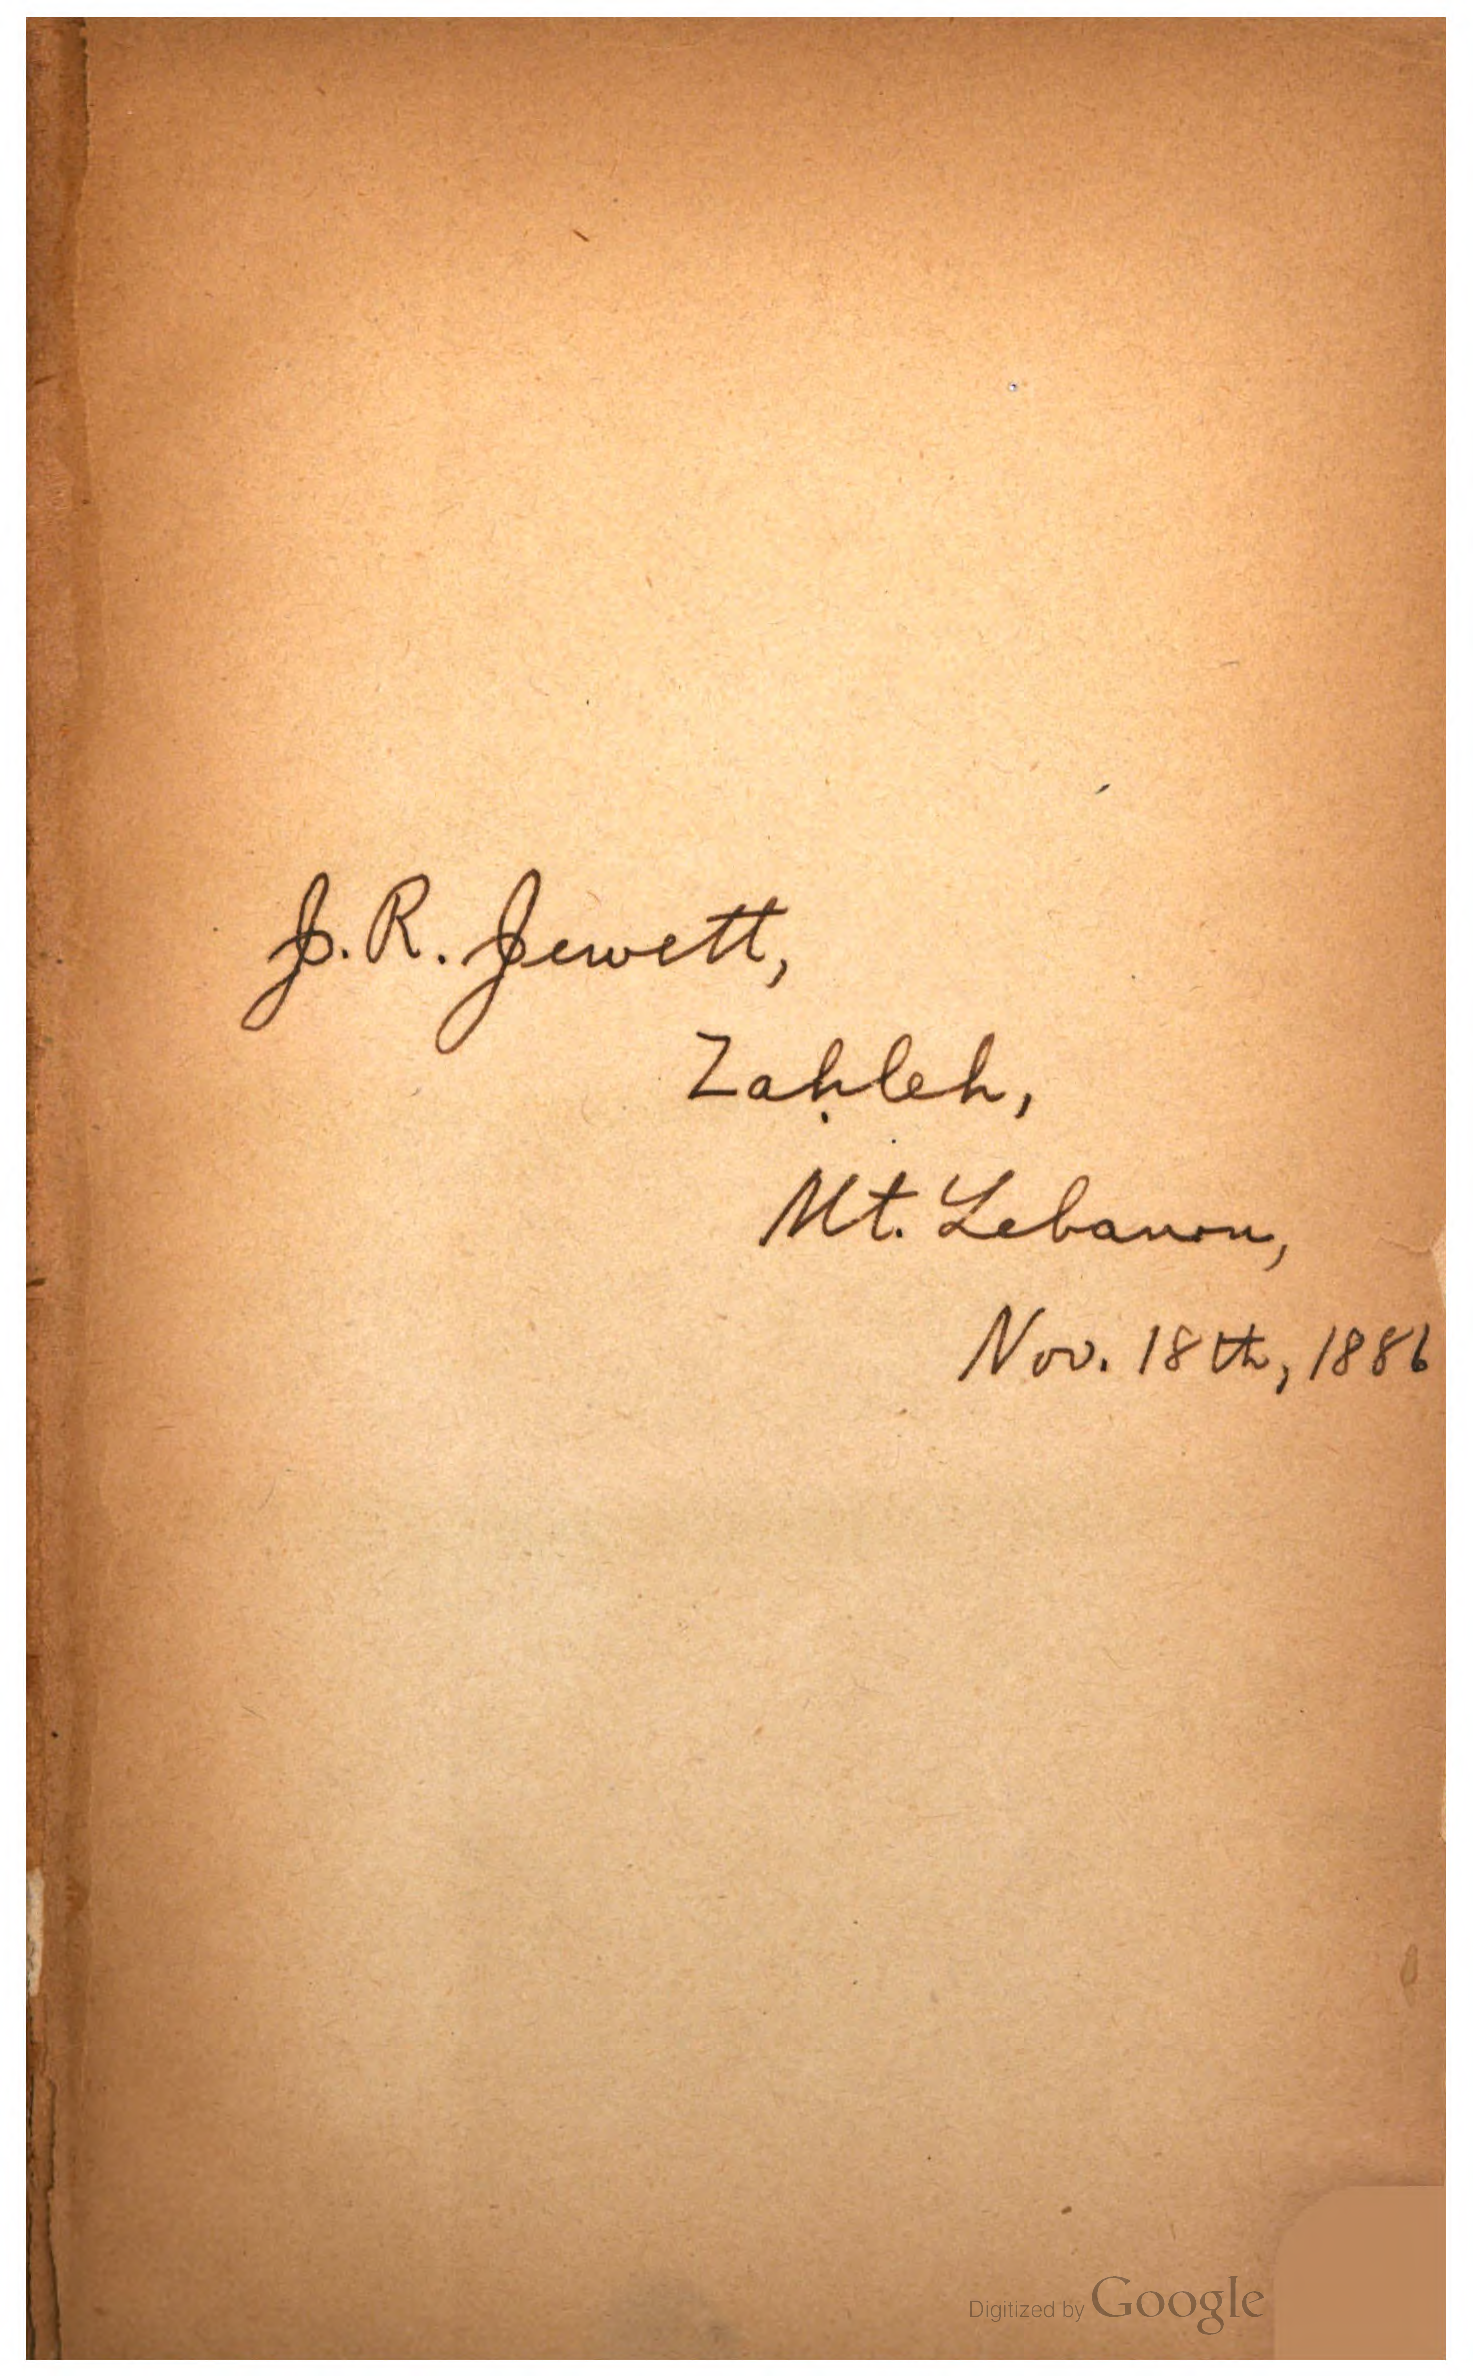 J. R. Jewett,
Zaḥleh,
Mt. Lebanon,
Nov. 18th, 1886
Digitized by Google